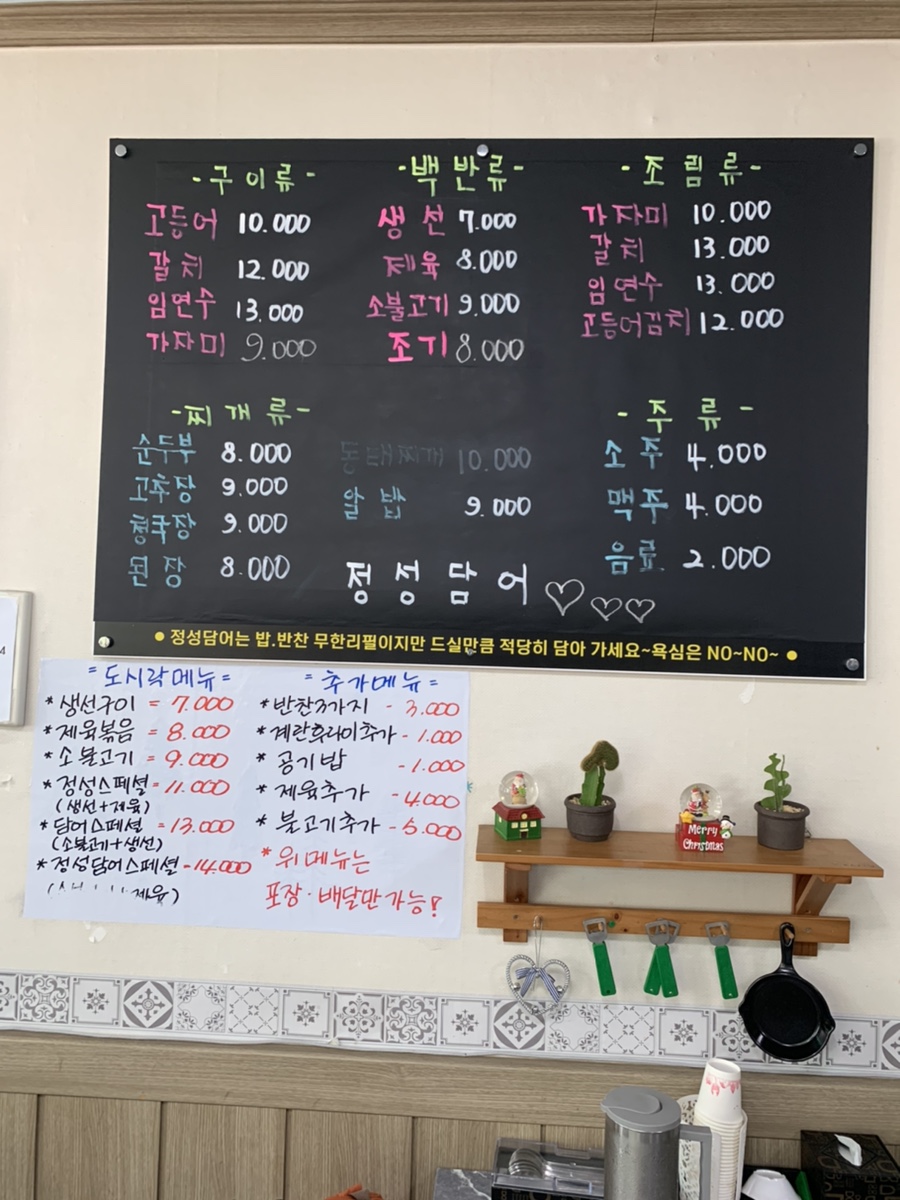 -구이류-
고등어 10.000
갈치 12.000
임연수 13.000
가자미 9.000
-백반류-
생선 7.000
제육 8.000
소불고기 9.000
조기 8.000
-조림류-
가자미 10.000
갈치 13.000
임연수 13.000
고등어김치 12.000
-찌개류-
순두부 8.000
고추장 9.000
청국장 9.000
된장 8.000
동태찌개 10.000
알밥 9.000
-주류-
소주 4.000
맥주 4.000
음료 2.000
정성담어
• 정성담어는 밥.반찬 무한리필이지만 드실만큼 적당히 담아 가세요~욕심은 NO~NO~ •
=도시락메뉴=
*생선구이 = 7.000
*제육볶음 = 8.000
*소불고기 = 9.000
*정성스페셜 = 11.000
(생선+제육)
*담어스페셜 = 13.000
(소불고기+생선)
*정성담어스페셜 - 14.000
제육)
=추가메뉴=
*반찬3가지 - 3.000
*계란후라이추가 - 1.000
*공기밥 - 1.000
*제육추가 - 4.000
*불고기추가 - 5.000
*위메뉴는
포장·배달만 가능!
Merry
Christmas
4